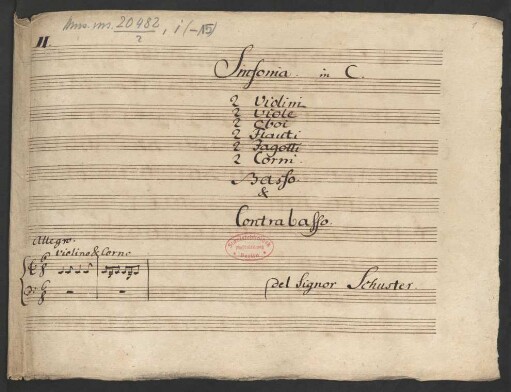 Mus. ms. 20482
2
11.
Sinfonia in C.
2 Violini
2 Viole
2 Oboi
2 Flauti
2 Fagotti
2 Corni.
Basso
&
Contrabasso.
Allegro.
Violino & Corno
del Signor Schuster.